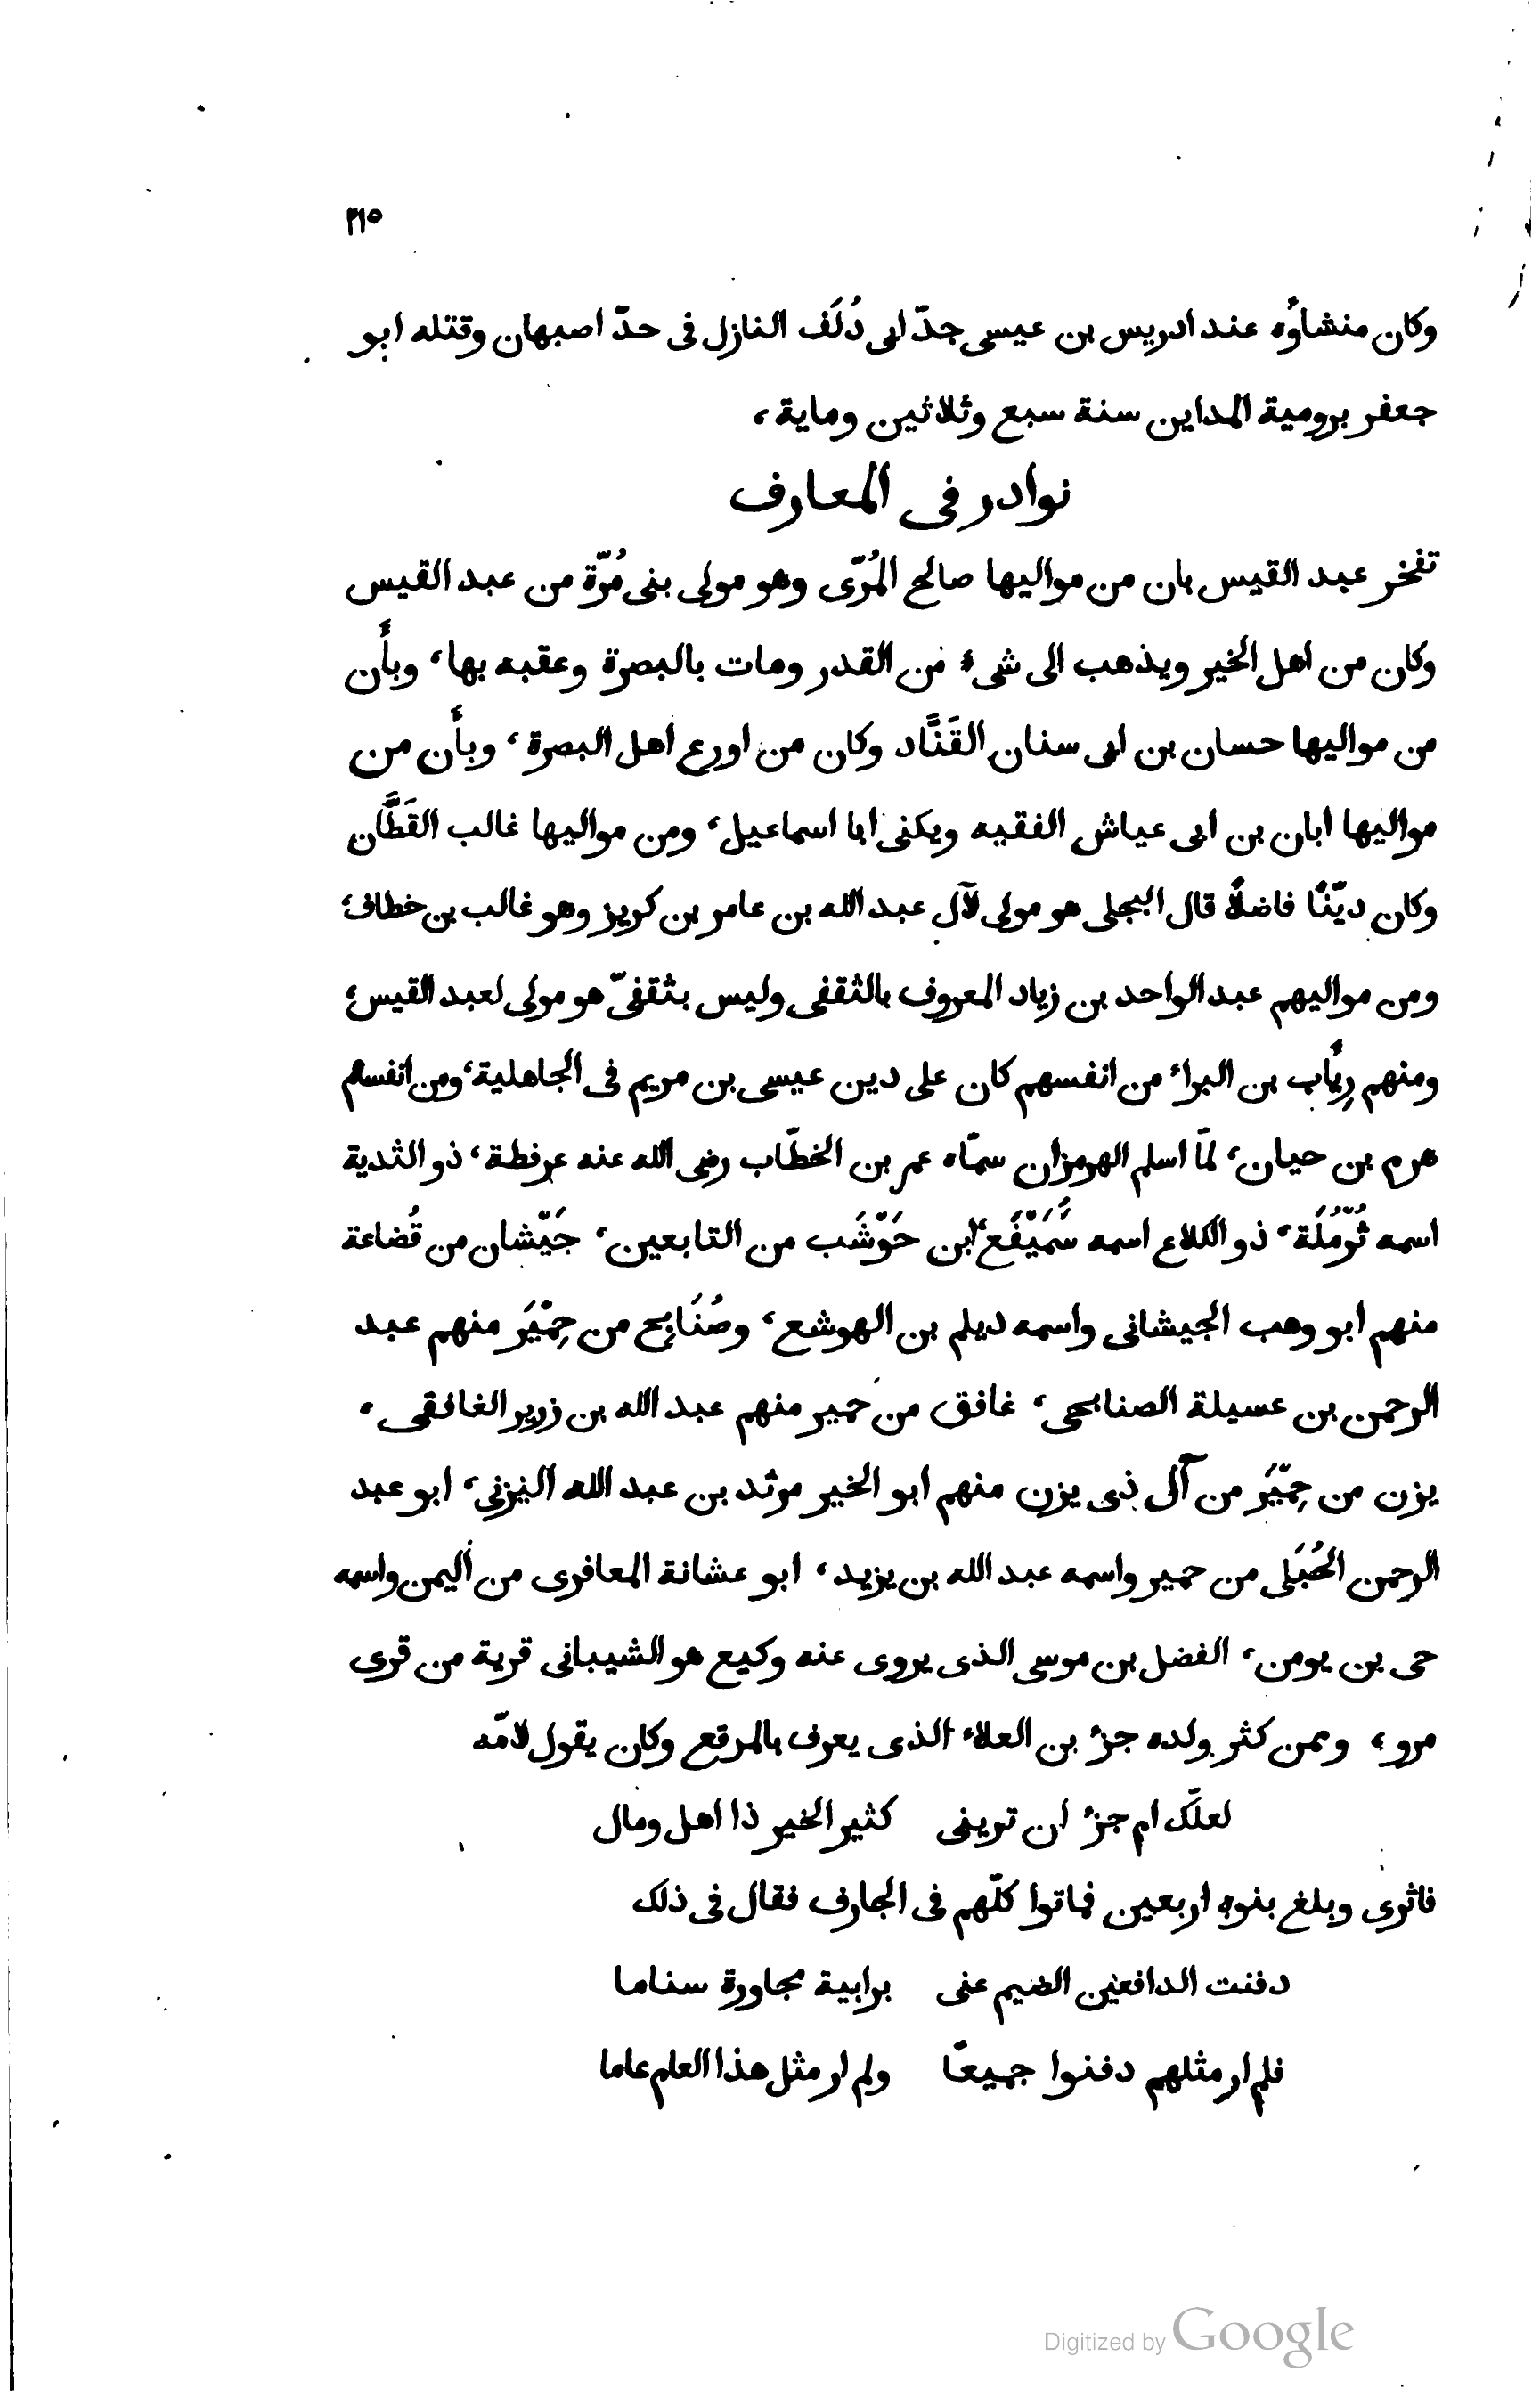 ٣١٥
وكان منشاؤه عند ادريس بن عيسى جدّ ابى دُلَف النازل فى حدّ اصبهان وقتله ابو
جعفر برومية المداين سنة سبع وثلاثين وماية،
نوادر فى المعارف
تفخر عبد القيس بان من مواليها صالح المُرّى وهو مولى بنى مُرّة من عبد القيس
وكان من اهل الخير ويذهب الى شىء من القدر ومات بالبصرة وعقبه بها، وبأن
من مواليها حسان بن ابى سنان القَنَّاد وكان من اورع اهل البصرة، وبأن من
مواليها ابان بن ابى عياش الفقيه ويكنى ابا اسماعيل، ومن مواليها غالب القَطَّان
وكان ديّنًا فاضلًا قال البجلى هو مولى لآل عبد الله بن عامر بن كريز وهو غالب بن خطاف،
ومن مواليهم عبد الواحد بن زياد المعروف بالثقفى وليس بثقفىّ هو مولى لعبد القيس،
ومنهم رِئاب بن البراء من انفسهم كان على دين عيسى بن مريم فى الجاهلية، ومن انفسهم
هرم بن حيان، لمّا اسلم الهرمزان سمّاه عمر بن الخطّاب رضى الله عنه عرفطة، ذو الثدية
اسمه ثُرْمُلَة، ذو الكلاع اسمه سُمَيْفَع ابن حَوْشَب من التابعين، جَيْشان من قُضاعة
منهم ابو وهب الجيشانى واسمه ديلم بن الهوشع، وصُنَابح من حِمْيَر منهم عبد
الرحمن بن عسيلة الصنابحى، غافق من حمير منهم عبد الله بن زرير الغافقى،
يزن من حِمْيَر من آل ذى يزن منهم ابو الخير مرثد بن عبد الله اليزنى، ابو عبد
الرحمن الحُبَلى من حمير واسمه عبد الله بن يزيد، ابو عشانة المعافرى من اليمن واسمه
حى بن يومن، الفضل بن موسى الذى يروى عنه وكيع هو الشيبانى قرية من قرى
مرو، وممن كثر ولده جزء بن العلاء الذى يعرف بالمرقع وكان يقول لامّه
لعلّك ام جزء ان ترينى كثير الخير ذا اهل ومال
فاثرى وبلغ بنوه اربعين فماتوا كلّهم فى الجارف فقال فى ذلك
دفنت الدافعين الضيم عنى برابية مجاورة سناما
فلم ار مثلهم دفنوا جميعًا ولم ار مثل هذا العام عاما
Digitized by Google